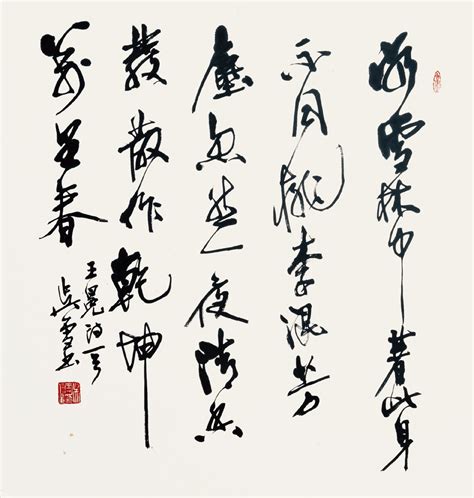 冰雪林中著此身
不同桃李混芳
塵忽然一夜清香
發散作乾坤
萬里春
王冕詩
吳雪